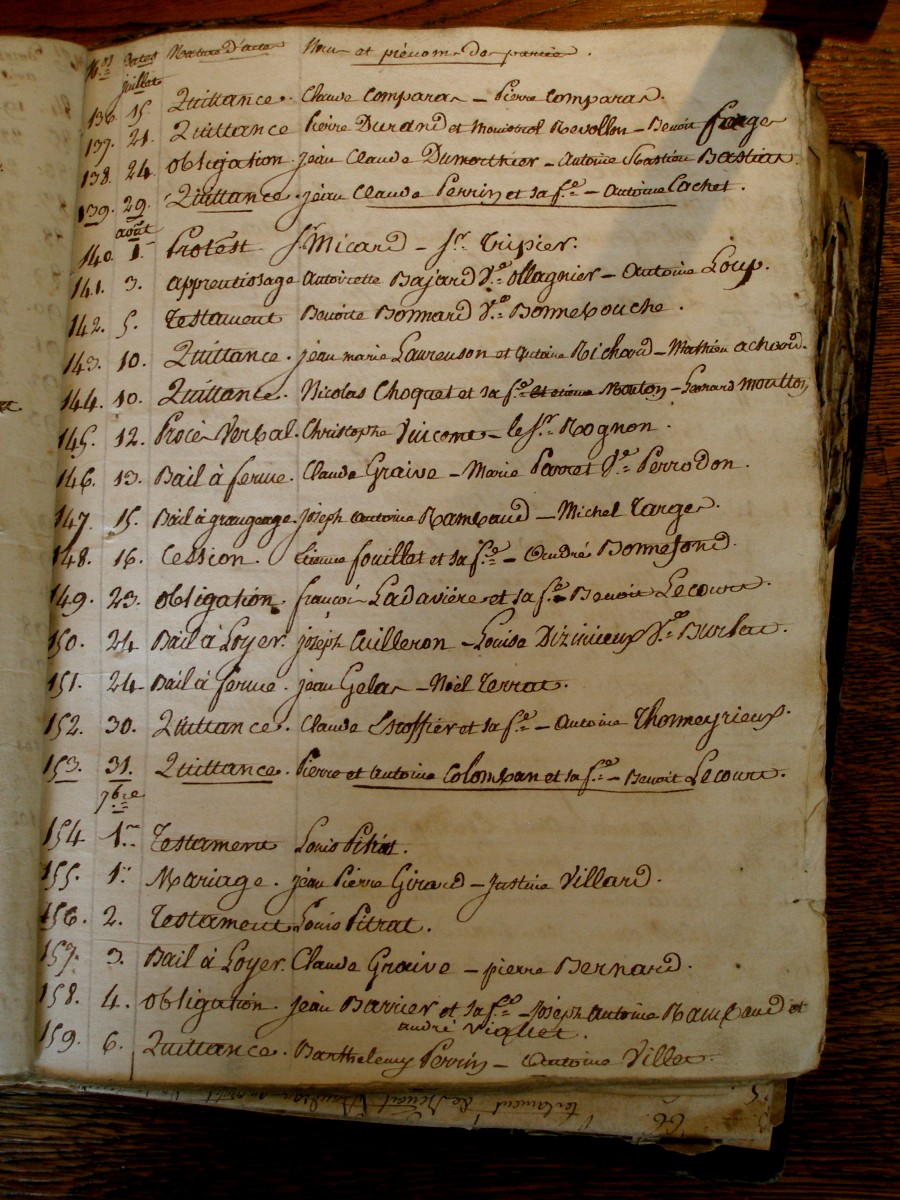 Nos Dates Nature D'actes Nom et prénom des parties.
juillet
136. 15. Quittance. Claude Comparas – Pierre Comparas.
137. 21. Quittance Pierre Durand et Revollon – Benoit farge
138. 24. obligation. jean Claude Dumorthier – Antoine Bastias.
139. 29. Quittance. jean Claude Perrin et sa fe. – Antoine Cachet.
août
140. 1er Protest Sr. Micard – Sr. Tripier.
141. 3. apprentissage Antoinette Bajard Ve. Ollagnier – Antoine Loup.
142. 5. Testament Benoite Bonnard Ve. Bonnebouche.
143. 10. Quittance. jean marie Laurenson et antoine Richard – Mathieu achard.
144. 10. Quittance. Nicolas Choquet et sa fe. – moutton
145. 12. Procès Verbal. Christophe Vuicomte – le Sr. Rognon.
146. 13. Bail à ferme. Claude Graive – Marie Parret Ve. Perrodon.
147. 15. Bail à grangeage. joseph antoine Rambaud – Michel Targe.
148. 16. Cession. Etienne fouillet et sa fe. – André Bonnefond.
149. 23. obligation. françois Ladavière et sa fe. Benoit Lecourt.
150. 24 Bail à Loyer. joseph Cuilleron – Louise Dizimieux Ve. Burlat.
151. 24 Bail à ferme. jean Gelas – Noël Terrat.
152. 30. Quittance. Claude Escoffier et sa fe. – Antoine Thonmeyrieux.
153. 31. Quittance. Pierre et antoine Colomban et sa fe. – Benoit Lecourt.
7bre
154 1er Testament Louis Pitrat.
155. 1er Mariage. jean Pierre Girard – Justine Villard.
156. 2. Testament Louis Pitrat.
157. 3. Bail à Loyer. Claude Graive – pierre Bernard.
158. 4. obligation. jean Barrier et sa fe. – Joseph Antoine Rambaud et
andré Viallet.
159. 6. Quittance. Barthelemy Perrin – Antoine Villet.